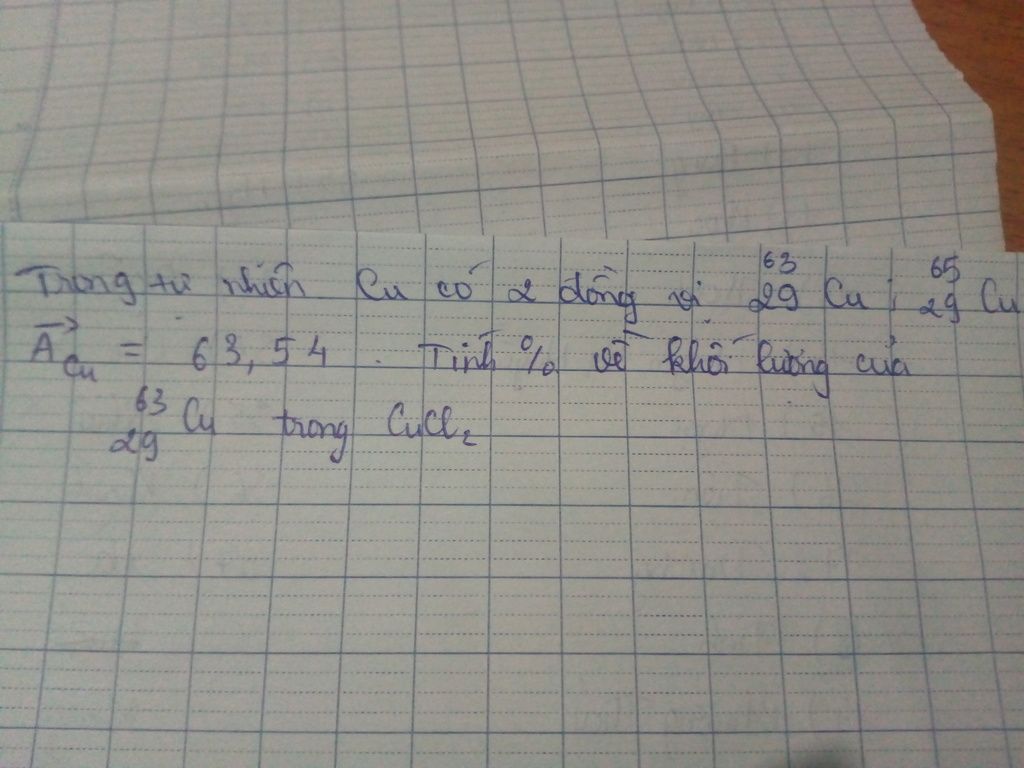 Trong tự nhiên Cu có 2 đồng vị ⁶³₂₉Cu ; ⁶⁵₂₉Cu
A⃗Cu = 63,54 . Tính % về khối lượng của
⁶³₂₉Cu trong CuCl₂